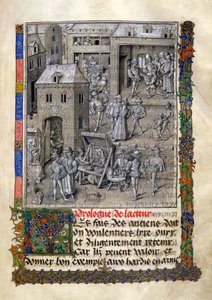 Prologue de lacteur
Les fais des anciens doit
on voulentiers lire ouyr
et diligentement retenir
Car Ilz peuent valoir et
donner bon exemple aux hardis en